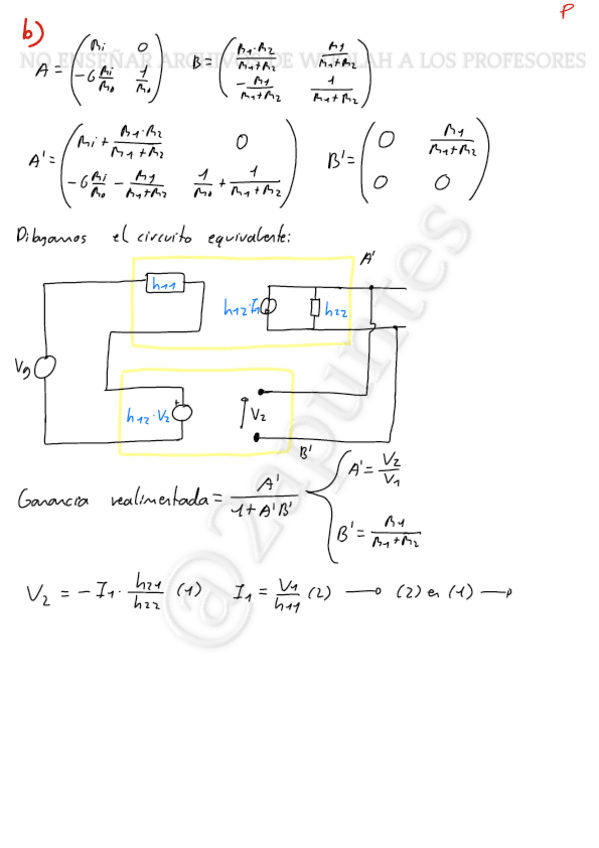 P
b)
NO ENSEÑAR ARCHIVO DE WUOLAH A LOS PROFESORES
A = (Ri 0 / -G Ri/Ro 1/Ro) B = (R1·R2/R1+R2 R1/R1+R2 / -R1/R1+R2 1/R1+R2)
A' = (Ri + R1·R2/R1+R2 0 / -G Ri/Ro - R1/R1+R2 1/Ro + 1/R1+R2) B' = (0 R1/R1+R2 / 0 0)
Dibujamos el circuito equivalente:
A'
h11
h12·I1
h22
Vg
h12·V2
V2
B'
Ganancia realimentada = A'/1+A'B'
A' = V2/V1
B' = R1/R1+R2
V2 = -I1 · h21/h22 (1) I1 = V1/h11 (2) → (2) en (1) →
@2apuntes